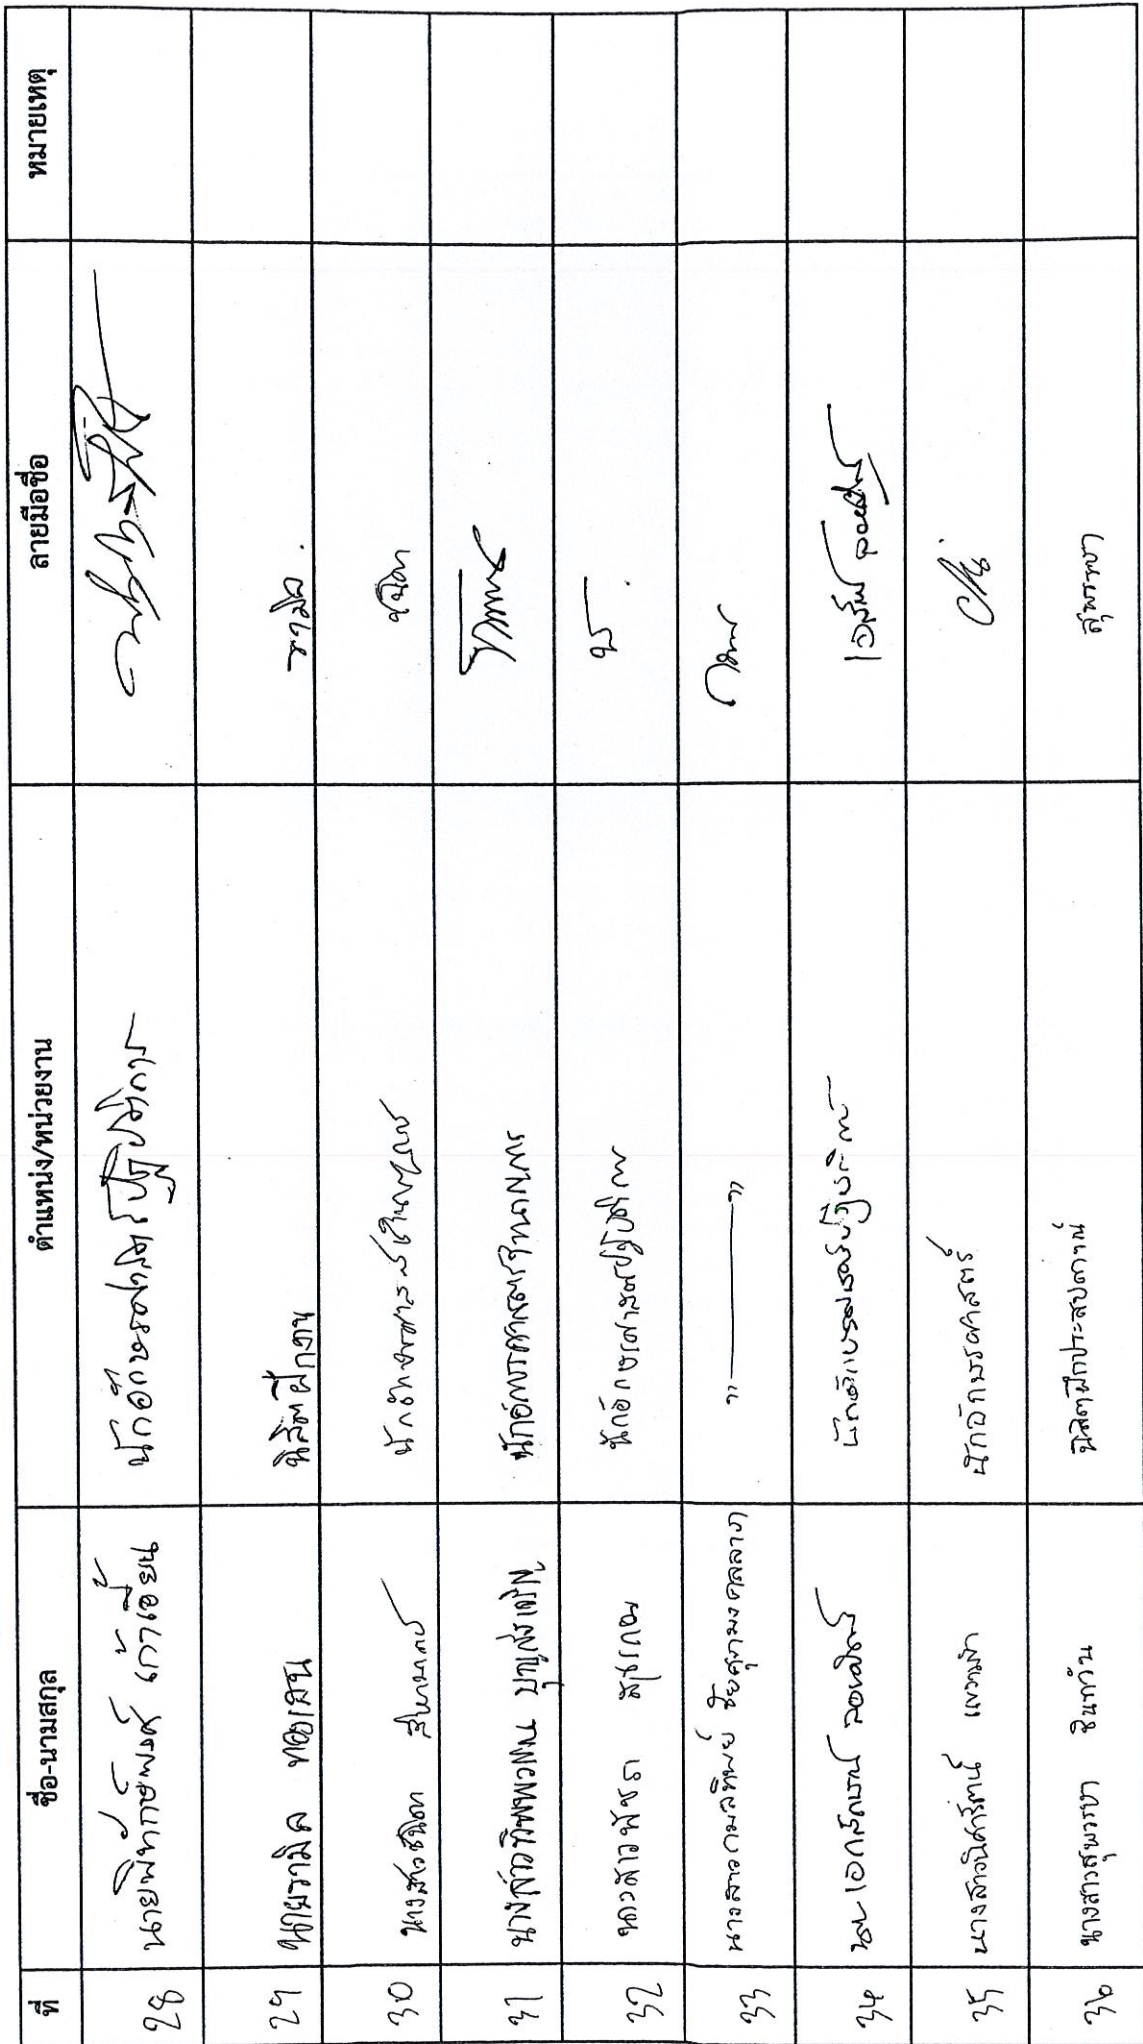 ที่ ชื่อ-นามสกุล ตำแหน่ง/หน่วยงาน ลายมือชื่อ หมายเหตุ
28 นายพิทักษ์พงศ์ เก้าเอี้ยน นักอักษรศาสตร์ปฏิบัติการ
29 นายรามิล ทองเอน นิสิตฝึกงาน รามิล.
30 นางสาวชนิดา สีหามาตย์ นักอักษรศาสตร์ชำนาญการ ชนิดา
31 นางสาวทิพพวรรณ บุญส่งเจริญ นักอักษรศาสตร์ชำนาญการ
32 นางสาวพัชรา สุขเกษม นักอักษรศาสตร์ปฏิบัติการ
33 นางสาวกมลทิพย์ ชัยศุภมงคลลาภ " ——— "
34 นักอักษรศาสตร์ปฏิบัติการ
35 นางสาวนิศารัตน์ นักอักษรศาสตร์
36 นางสาวสุพรรษา ชินทวัน นิสิตฝึกประสบการณ์ สุพรรษา